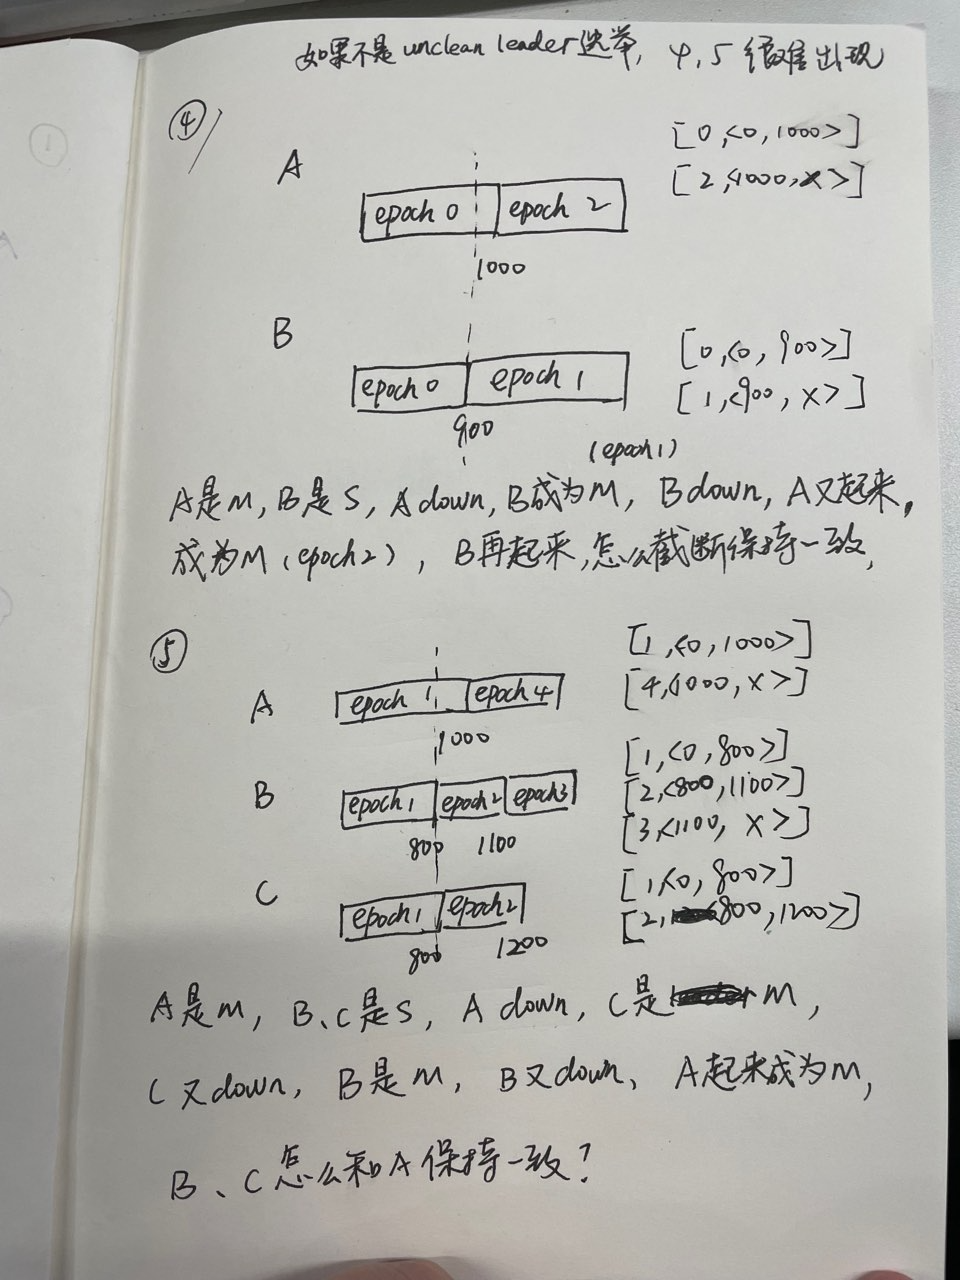 如果不是unclean leader选举, 4,5 很难出现
④
A
epoch 0 epoch 2
1000
[0,<0,1000>]
[2,<1000,x>]
B
epoch 0 epoch 1
900
[0,<0,900>]
[1,<900,x>]
(epoch1)
A是M, B是S, A down, B成为M, B down, A又起来,
成为M(epoch2), B再起来,怎么截断保持一致,
⑤
A
epoch 1 epoch 4
1000
[1,<0,1000>]
[4,<1000,x>]
B
epoch1 epoch2 epoch3
800 1100
[1,<0,800>]
[2,<800,1100>]
[3,<1100,x>]
C
epoch1 epoch2
800 1200
[1,<0,800>]
[2,<800,1200>]
A是M, B、C是S, A down, C是M,
C又down, B是M, B又down、A起来成为M,
B、C怎么和A保持一致?